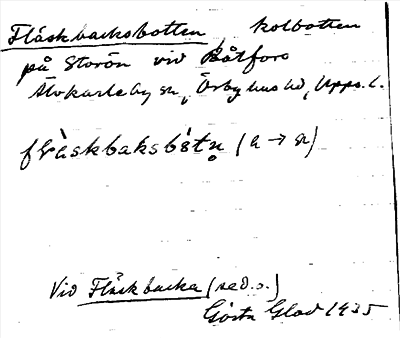 Fläskbacksbotten, kolbotten
på Storön vid Båtfors
Älvkarleby sn, Örbyhus hd, Upps. l.
fläskbaksbòtn̥ (a → a)
Vid Fläskbacka (se d. o.)
Gösta Glad 1935